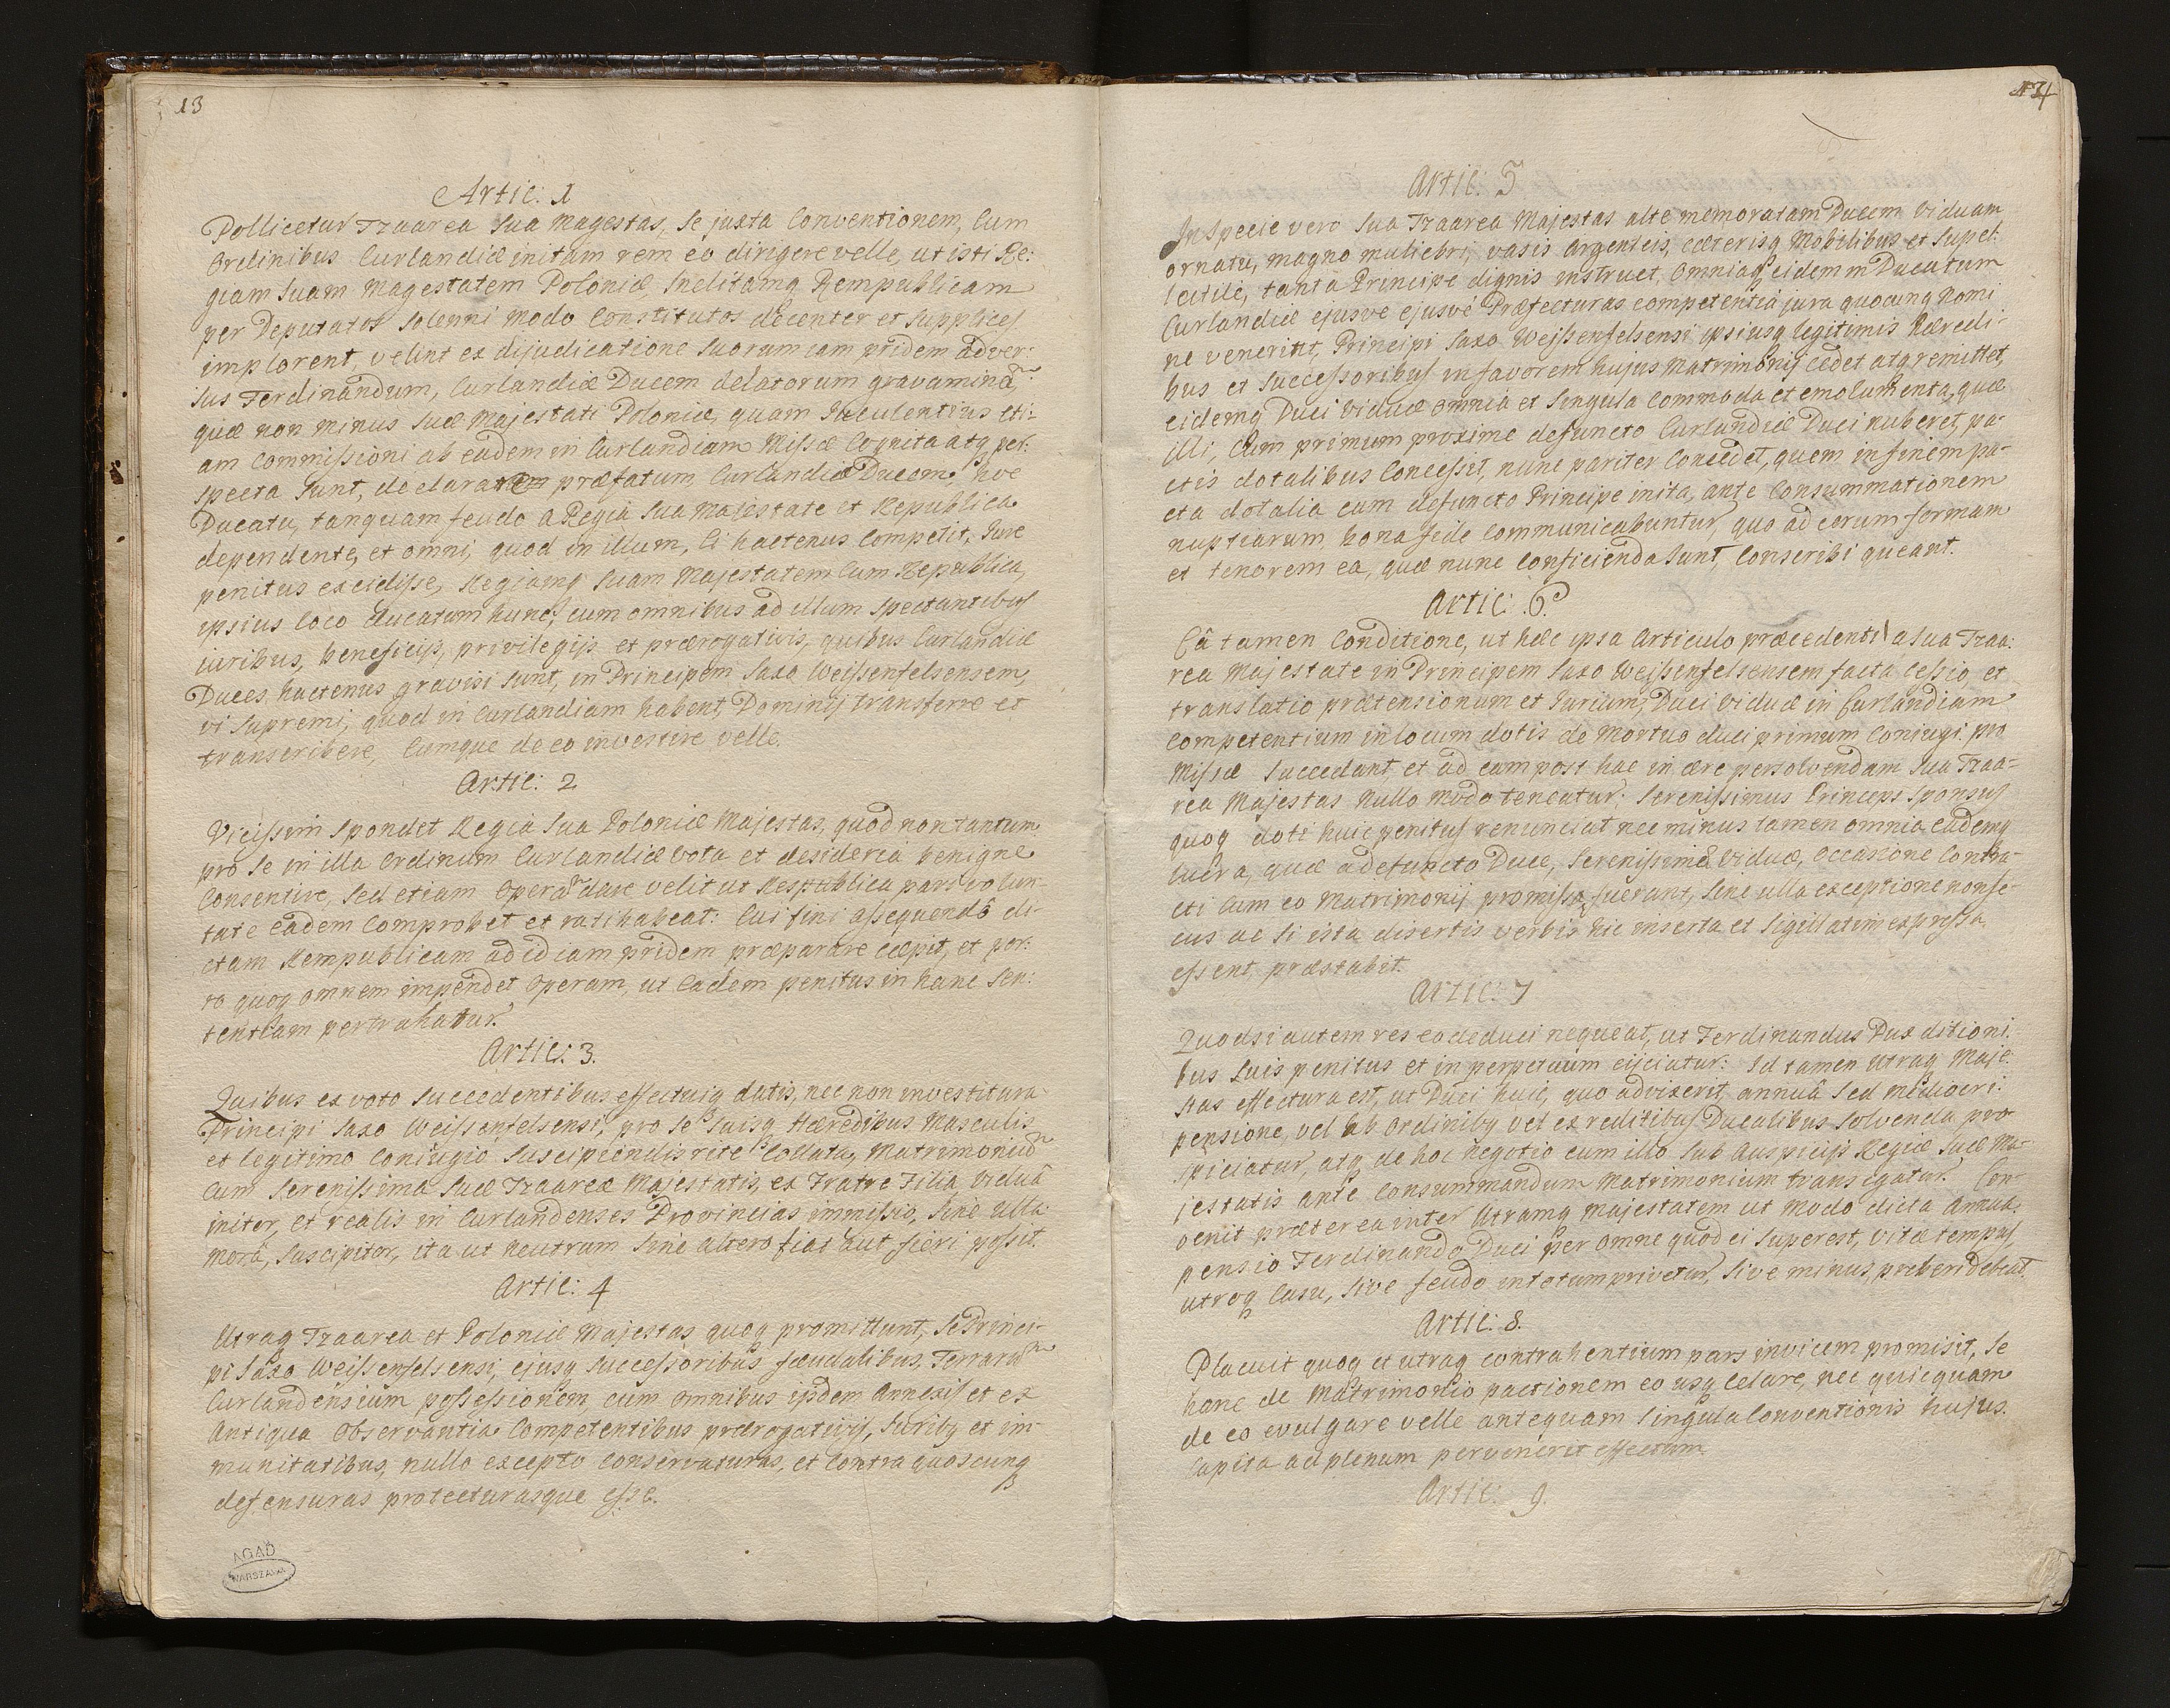 13
Artic: 1
Pollicetur Tzaarea Sua Magestas, Se juxta Conventionem, Cum
Ordinibus Curlandiæ initam rem eo dirigere velle, ut isti Re:
giam Suam Magestatem Poloniæ, Inclitamq Rempublicam
per Deputatos Solenni modo Constitutos decenter et Supplices
implorent, velint ex dijudicatione Suorum iam pridem adver:
sus Ferdinandum, Curlandiæ Ducem delatorum gravaminũ,
quæ non minus Suæ Majestati Poloniæ, quam luculentius eti:
am Commissioni ab eadem in Curlandiam Missæ Cognita atq per:
specta Sunt, declarare præfatum Curlandiæ Ducem, hoc
Ducatu, tanquam feudo a Regia Sua Majestate et Republica
dependente, et omni, quod in illum, Ci hactenus Competit, Jure
penitus excidisse, Regiamq Suam Majestatem Cum Republica,
ipsius loco ducatum hunc, cum omnibus ad illum Spectantibus
iuribus, beneficijs, privilegijs et prærogativis, quibus Curlandiæ
Duces hactenus gravisi Sunt, in Principem Saxo Weissenfelsensem,
vi Supremi, quod in Curlandiam habent, Dominij transferre et
transcribere, Cumque de eo investire velle.
Artic: 2
Vicissim Spondet Regia Sua Poloniæ Majestas, quod non tantum
pro Se in illa Ordinum Curlandiæ vota et desideria benigne
Consentire, Sed etiam Operã dare velit ut Respublica pars volun-
tate Eadem Comprobet et ratihabeat: Cui fini assequendo di-
ctam Rempublicam ad id iam pridem præparare cæpit, et por:
ro quoq omnem impendet Operam, ut Eadem penitus in hanc Sen:
tentiam pertrahatur.
Artic: 3.
Quibus ex voto Succedentibus effectuiq datis, nec non investitura
Principi Saxo Weissenfelsensi, pro Se Suisq Hæredibus Masculis
et legitimo Coniugio Suscipiendis rite Collata, Matrimoniũ
Cum Serenissima Suæ Tzaareæ Majestatis, ex Fratre Filia Viduâ
initor, et realis in Curlandenses Provincias immissio, Sine ulla
morâ, Suscipitor, ita ut Neutrum Sine altero fiat aut fieri possit.
Artic: 4
Utraq Tzaarea et Poloniæ Majestas quoq promittunt, Se Princi-
pi Saxo Weissenfelsensi, ejusq Successoribus fæudalibus, Terrarũ
Curlandensium possessionem, cum omnibus ijsdem Annexis et ex
Antiqua Observantia Competentibus prærogativis, Juribq et im-
munitatibus, nullo excepto conservaturas, et Contra quoscunq
defensuras protecturasque esse.
AGAD
WARSZAWA
14
Artic: 5
In Specie vero Sua Tzaarea Majestas alte memoratam Ducem Viduam
ornatu, magno muliebri, vasis Argenteis, cæterisq Mobilibus et Supel:
lectile, tanta Principe dignis instruet, Omniaq eidem in Ducatum
Curlandiæ ejusve ejusvé Præfecturas competentia jura quocunq Nomi
ne venerint, Principi Saxo Weissenfelsensi ipsiusq legitimis Hæredi-
bus et Successoribus in favorem hujus Matrimonij cedet atq remittet,
eidemq Duci Viduæ Omnia et Singula Commoda et emolumenta, quæ
illi, Cum primum proxime defuncto Curlandiæ Duci nuberet, pa-
ctis dotalibus Concessit, nunc pariter Concedet, quem in finem pa-
cta dotalia cum defuncto Principe inita, ante Consummationem
nuptiarum bona fide Communicabuntur, quo ad eorum formam
et tenorem ea, quæ nunc Conficienda Sunt, Conscribi queant.
Artic: 6.
Câ tamen Conditione, ut hæc ipsa Articulo præcedenti a Sua Tzaa:
rea Majestate in Principem Saxo Weissenfelsensem facta Cessio et
translatio prætensionum et Jurium, Duci Viduæ in Curlandiam
Competentium in locum dotis de Mortuo duci primum Coniugi pro
Missæ Succedant, et ad eam post hac in ære persolvendam Sua Tzaa=
rea Majestas Nullo Modo teneatur; Serenissimus Princeps Sponsus
quoq doti huic penitus renunciat nec minus tamen omnia Eademq
lucra, quæ a defuncto Duce, Serenissimæ Viduæ, Occasione Contra-
cti Cum eo Matrimonij promissa fuerunt, Sine ulla exceptione non se-
cus ac Si ista disertis verbis hic inserta et Sigillatim expressa
essent, præstabit.
Artic: 7
Quodsi autem res eo deduci nequeat, ut Ferdinandus Dux ditioni
bus Suis penitus et in perpetuum eijciatur: Id tamen Utraq Maje
stas effectura est, ut Duci huic, quo advixerit, annuâ Sed mediocri
pensione, vel ab Ordinibq vel ex reditibus Ducalibus Solvenda pro
spiciatur, atq de hoc Negotio cum illo Sub Auspicijs Regiæ Suæ Ma-
jestatis ante Consummandum Matrimonium transigatur. Con-
venit præterea inter Utramq Majestatem ut modo dicta Annua
pensio Ferdinando Duci per omne quod ei Superest, vitæ tempus,
utroq Casu, Sive feudo in totum privetur, Sive minus, præberi debeat.
Artic: 8.
Placuit quoq et utraq contrahentium pars invicem promisit, Se
hanc de Matrimonio pactionem eo usq Celare, nec quicquam
de eo evulgare velle antequam Singula Conventionis hujus
Capita ad plenum pervenerit effectum.
Artic: 9.